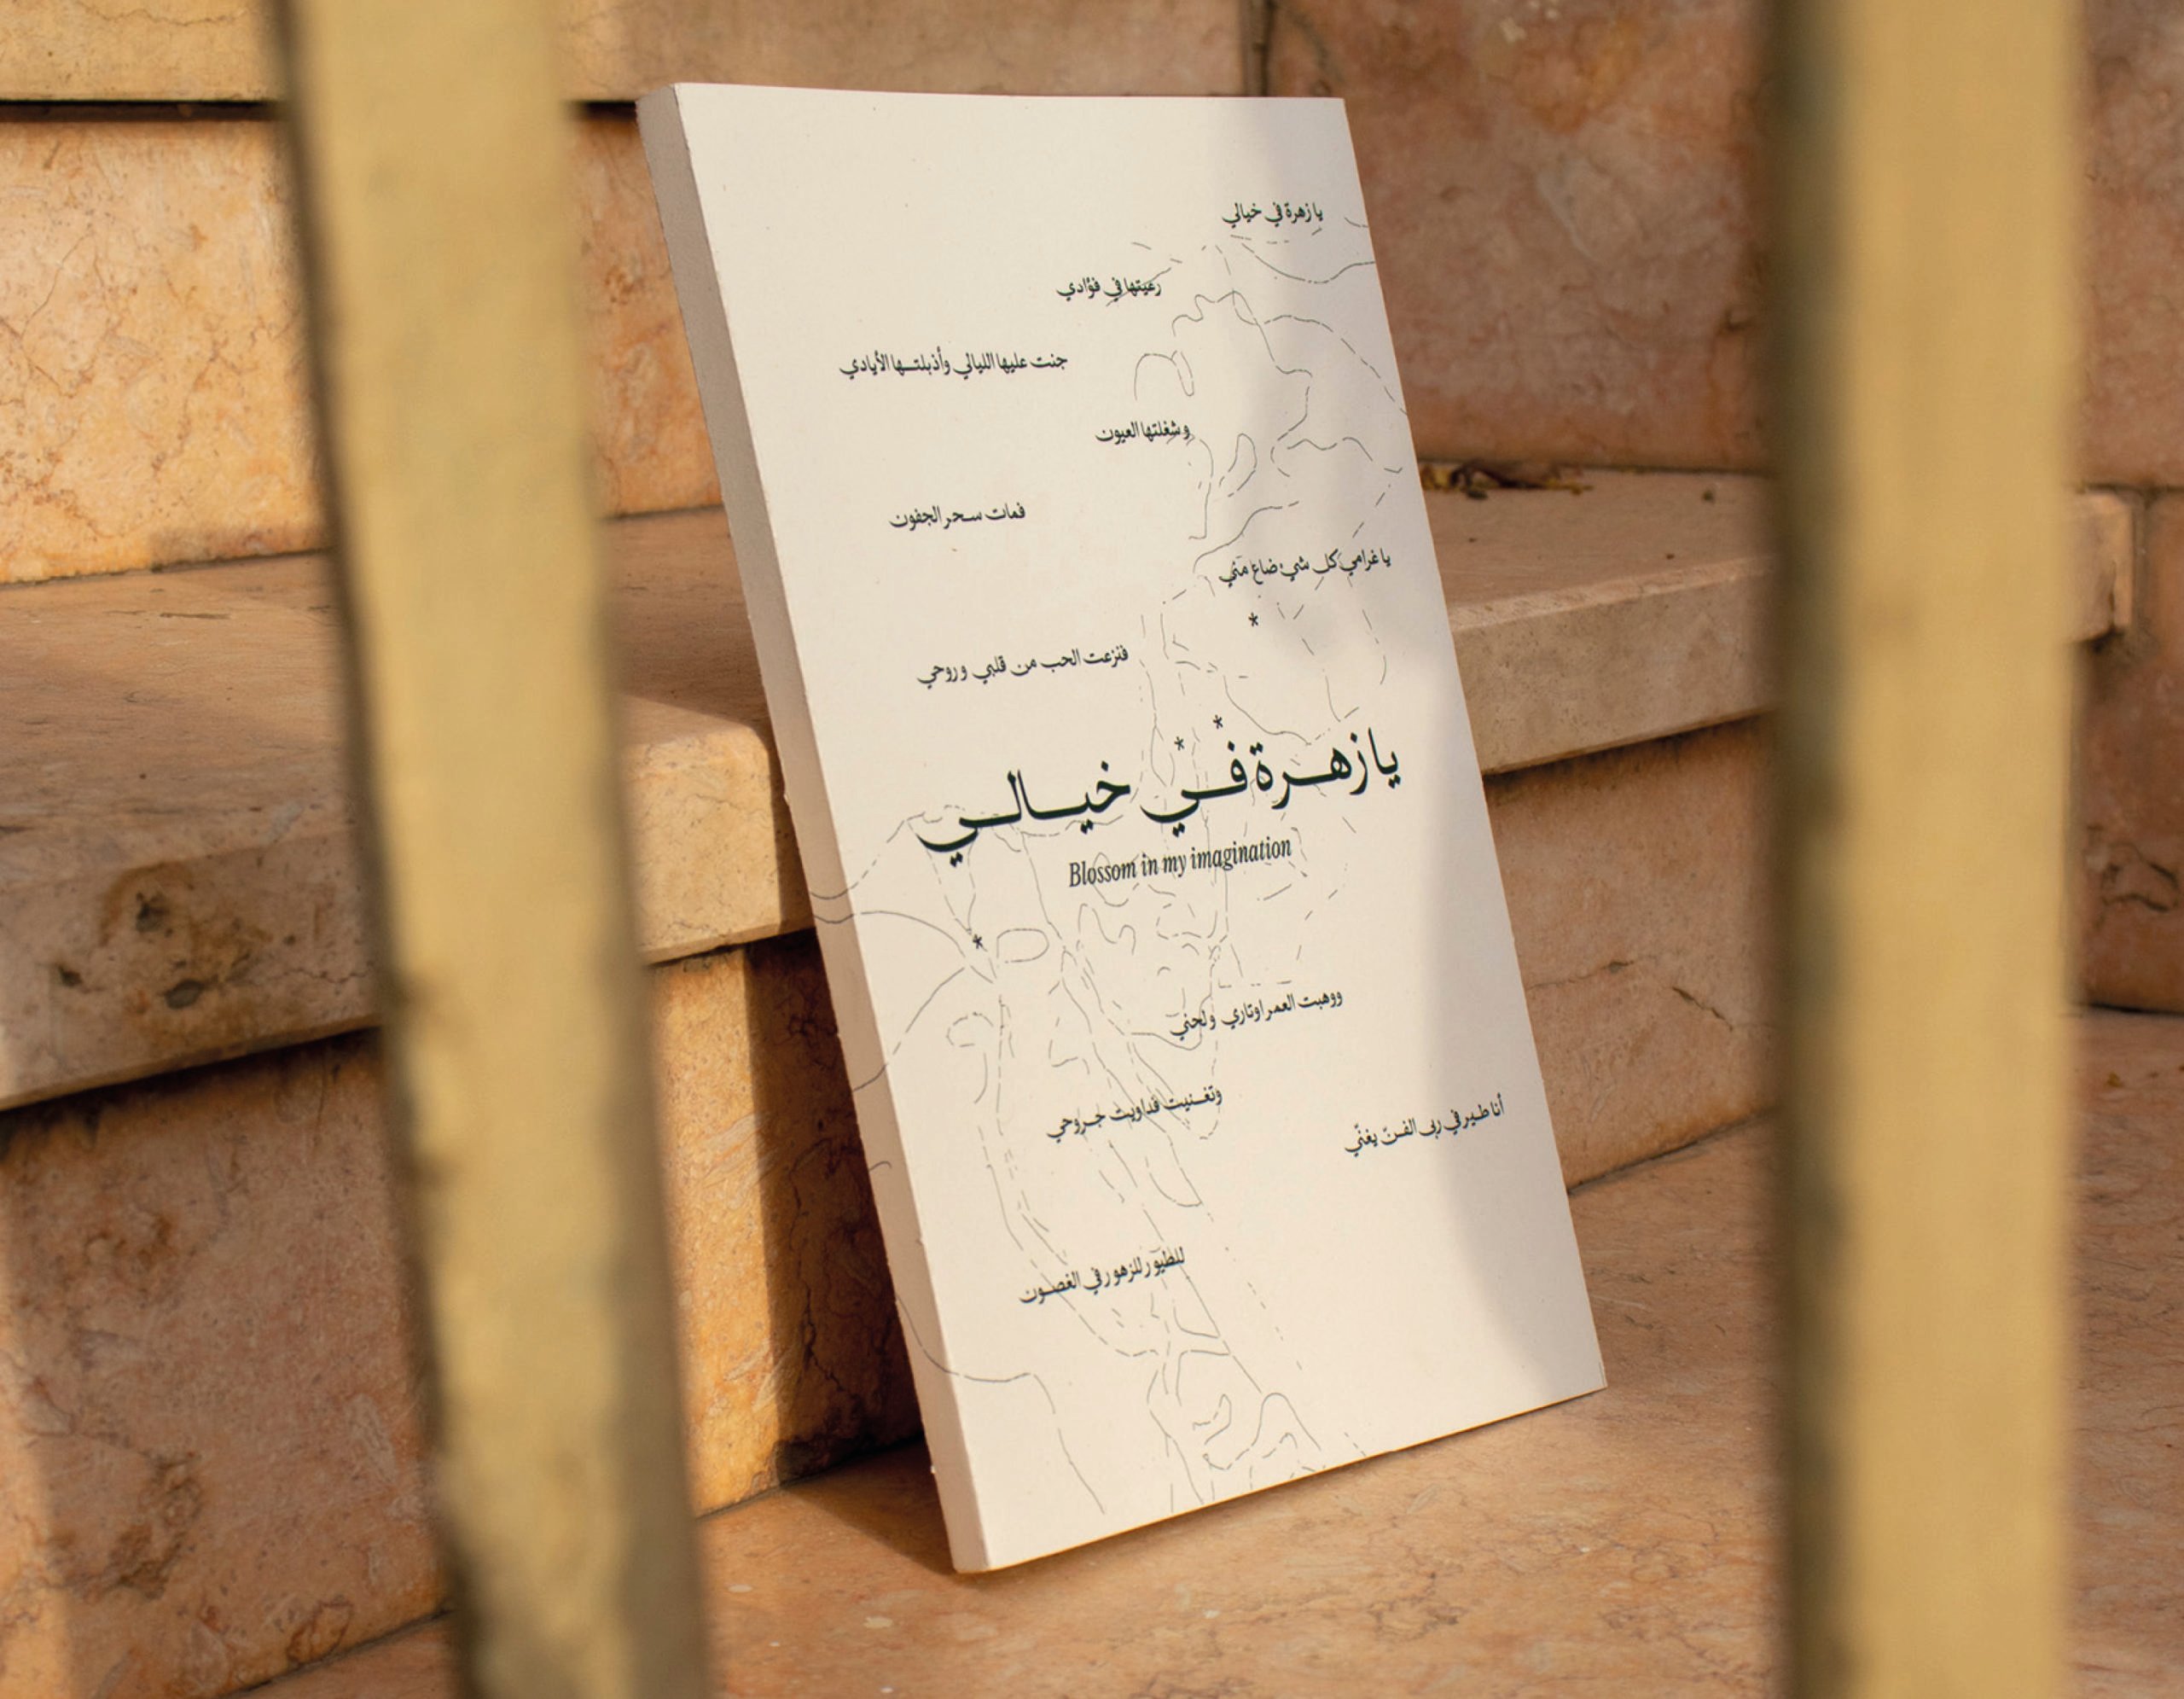 يا زهرة في خيالي
رعيتها في فؤادي
جنت عليها الليالي وأذبلتها الأيادي
وشغلتها العيون
فمات سحر الجفون
يا غرامي كل شيء ضاع منّي
فنزعت الحب من قلبي وروحي
يا زهرة في خيالي
Blossom in my imagination
ووهبت العمر اوتاري ولحني
وتغنيت قداويت جروحي
أنا طير في ربى الفنّ يغنّي
للطيور للزهور في الغصون